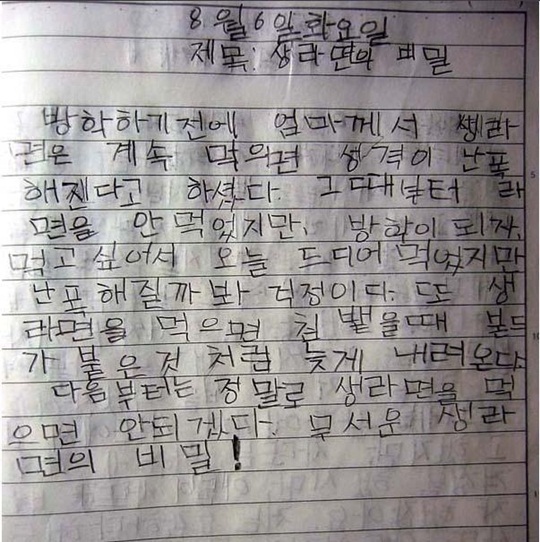 8월6일화요일
제목: 생라면의 비밀
방학하기전에 엄마께서 생라
면은 계속 먹의면 성격이 난폭
해제다고 하셨다. 그때부터 라
면을 안먹었지만, 방학이 되자,
먹고 싶어서 오늘 드디어 먹었지만
난폭해질까봐 걱정이다. 또 생
라면을 먹으면 침 뱉을때 본드
가 붙은것 처럼 늦게 내려온다.
다음부터는 정말로 생라면을 먹
으면 안되겠다. 무서운 생라
면의 비밀!